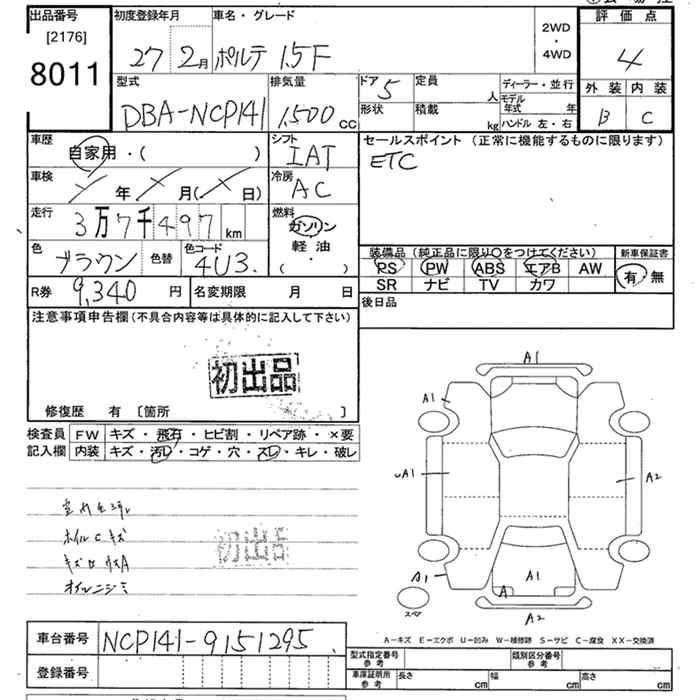 出品番号
[2176]
8011
初度登録年月
27 2月
車名・グレード
ポルテ 1.5F
2WD
・
4WD
評価点
4
外装 内装
B C
型式
DBA-NCP141
排気量
1,500 cc
ドア 5
形状
定員 人
積載 kg
ディーラー・並行
モデル年式 年
ハンドル 左・右
車歴
自家用・( )
シフト
IAT
セールスポイント (正常に機能するものに限ります)
ETC
車検
年 月( 日)
冷房
AC
走行
3万7千497 km
燃料
ガソリン
軽油
( ・ )
色
ブラウン
色替
色コード
4U3.
装備品(純正品に限り○をつけてください)
PS PW ABS エアB AW
SR ナビ TV カワ
新車保証書
有・無
R券 9,340 円
名変期限 月 日
後日品
注意事項申告欄(不具合内容等は具体的に記入して下さい)
初出品
修復歴 有 [箇所 ]
検査員
記入欄
FW キズ・飛石・ヒビ割・リペア跡・×要
内装 キズ・汚レ・コゲ・穴・スレ・キレ・破レ
ホイルCキズ
オイルニジミ
初出品
A1
A1
A1
A2
A1
A1
A
A2
スペア
車台番号 NCP141-9151295
登録番号
A-キズ E-エクボ U-凹み W-補修跡 S-サビ C-腐食 XX-交換済
型式指定番号
参考
類別区分番号
参考
車庫証明用
参考
長さ cm 幅 cm 高さ cm